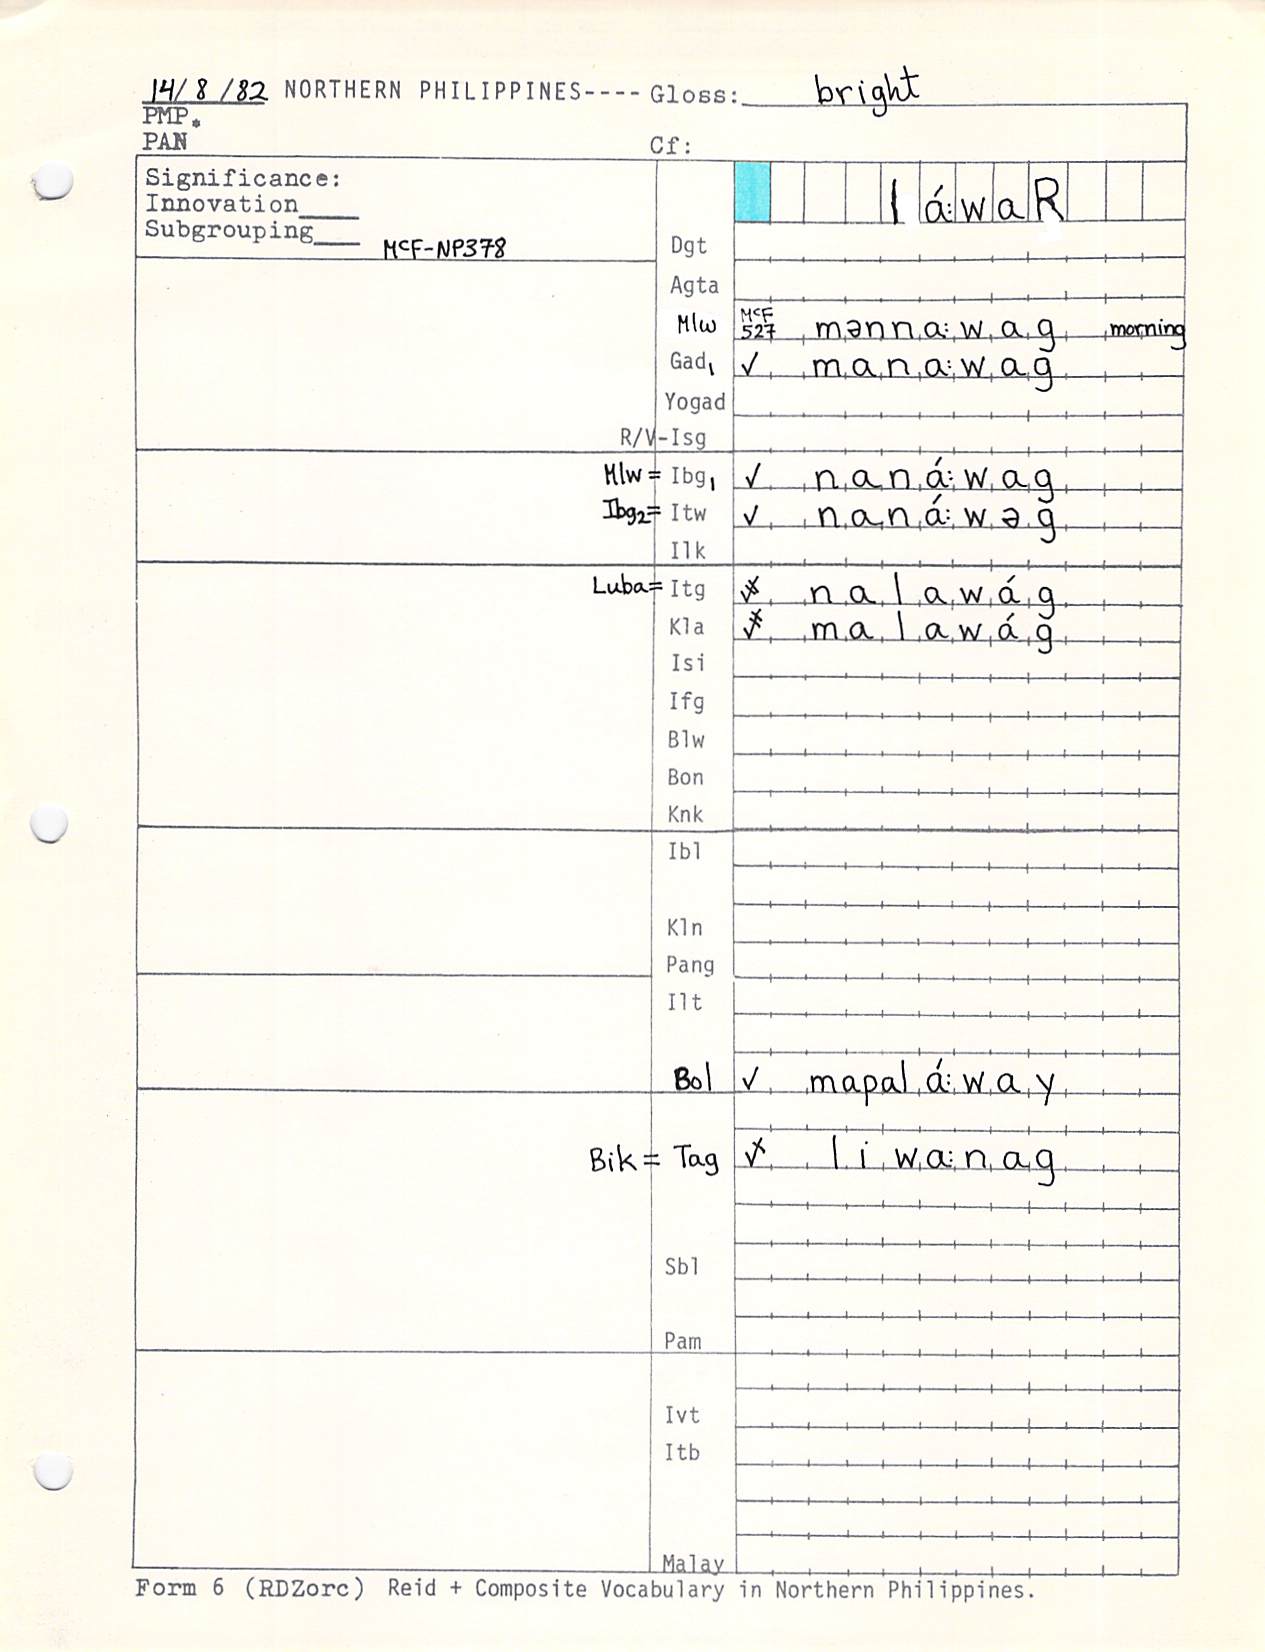 14/8/82 NORTHERN PHILIPPINES---- Gloss: bright
PMP.
PAN Cf:
Significance:
Innovation____ l á: w a R
Subgrouping___ McF-NP378
Dgt
Agta
Mlw McF 527 mənna:wag morning
Gad1 ✓ mana:wag
Yogad
R/V-Isg
Mlw = Ibg1 ✓ naná:wag
Ibg2 = Itw ✓ naná:wəg
Ilk
Luba = Itg ✓ nalawág
Kla ✓ malawág
Isi
Ifg
Blw
Bon
Knk
Ibl
Kln
Pang
Ilt
Bol ✓ mapalá:way
Bik = Tag ✓ liwa:nag
Sbl
Pam
Ivt
Itb
Malay
Form 6 (RDZorc) Reid + Composite Vocabulary in Northern Philippines.